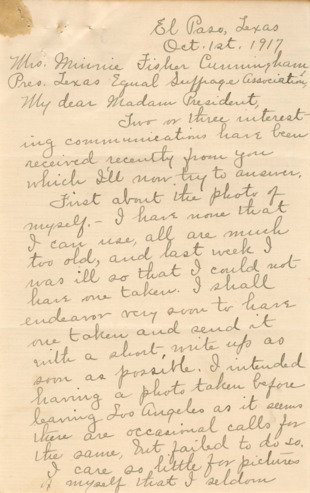 El Paso, Texas
Oct. 1st, 1917
Mrs. Minnie Fisher Cunningham
Pres. Texas Equal Suffrage Association,
My dear Madam President,
Two or three interest-
ing communications have been
received recently from you
which I'll now try to answer.
First about the photo of
myself. - I have none that
I can use, all are much
too old, and last week I
was ill so that I could not
have one taken. I shall
endeavor very soon to have
one taken and send it
with a short, write up as
soon as possible. I intended
having a photo taken before
leaving Los Angeles as it seems
there are occasional calls for
the same, but failed to do so.
I care so little for pictures
of myself that I seldom